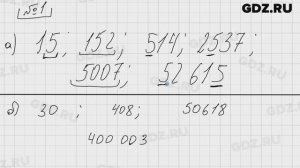 GDZ.RU
№1
а) 15; 152; 514; 2537;
5007; 52615
б) 30; 408; 50618
400 003